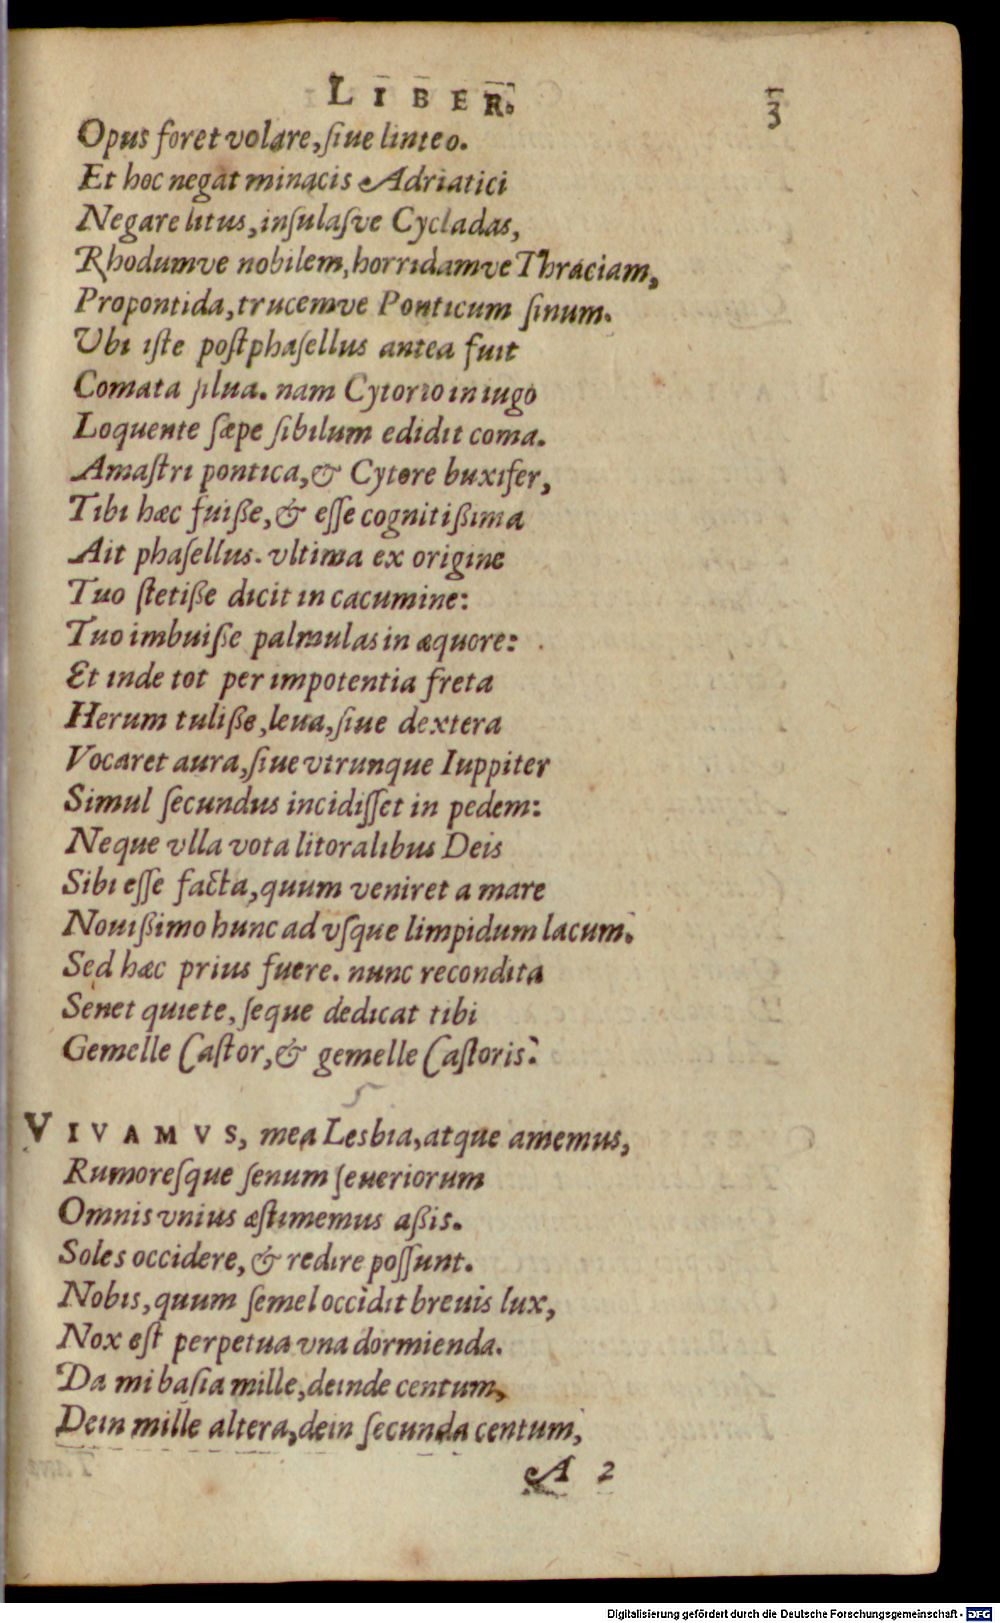 LIBER. 3
Opus foret volare, ſiue linteo.
Et hoc negat minacis Adriatici
Negare litus, inſulaſve Cycladas,
Rhodumve nobilem, horridamve Thraciam,
Propontida, trucemve Ponticum ſinum.
Vbi iſte poſt phaſellus antea fuit
Comata ſilua. nam Cytorio in iugo
Loquente ſæpe ſibilum edidit coma.
Amaſtri pontica, & Cytore buxifer,
Tibi hæc fuiße, & eſſe cognitißima
Ait phaſellus. vltima ex origine
Tuo ſtetiße dicit in cacumine:
Tuo imbuiſſe palmulas in æquore:
Et inde tot per impotentia freta
Herum tuliße, leua, ſiue dextera
Vocaret aura, ſiue vtrunque Iuppiter
Simul ſecundus incidiſſet in pedem:
Neque vlla vota litoralibus Deis
Sibi eſſe facta, quum veniret a mare
Nouißimo hunc ad vſque limpidum lacum.
Sed hæc prius fuere. nunc recondita
Senet quiete, ſeque dedicat tibi
Gemelle Caſtor, & gemelle Caſtoris.
5
VIVAMVS, mea Lesbia, atque amemus,
Rumoreſque ſenum ſeueriorum
Omnis vnius æſtimemus aßis.
Soles occidere, & redire poſſunt.
Nobis, quum ſemel occidit breuis lux,
Nox eſt perpetua vna dormienda.
Da mi baſia mille, deinde centum,
Dein mille altera, dein ſecunda centum,
A 2
Digitalisierung gefördert durch die Deutsche Forschungsgemeinschaft - DFG